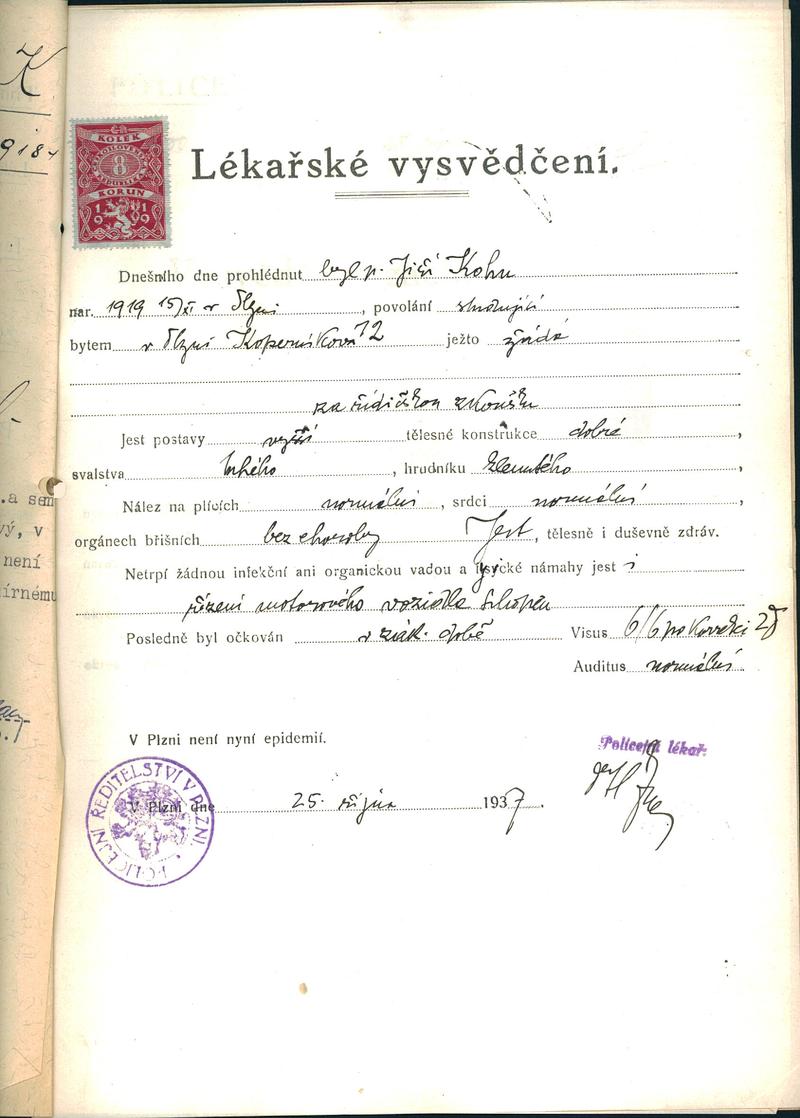 K
918
KOLEK
8
KORUN
19 19
Lékařské vysvědčení.
Dnešního dne prohlédnut byl p. Jiří Kohn
nar. 1919 15/XI v Plzni, povolání studující
bytem v Plzni Koperníkova 12 ježto žádá
za řidičskou zkoušku
Jest postavy vyšší tělesné konstrukce dobré,
svalstva tuhého, hrudníku klenutého,
Nález na plicích normální, srdci normální,
orgánech břišních bez choroby Jest, tělesně i duševně zdráv.
Netrpí žádnou infekční ani organickou vadou a fysické námahy jest i
řízení motorového vozidla schopen
Posledně byl očkován v zák. době Visus 6/6 po korekci
Auditus normální
V Plzni není nyní epidemií.
Policejní lékař:
V Plzni dne 25. října 1937.
POLICEJNÍ ŘEDITELSTVÍ V PLZNI
a sem
vý, v
není
írnému